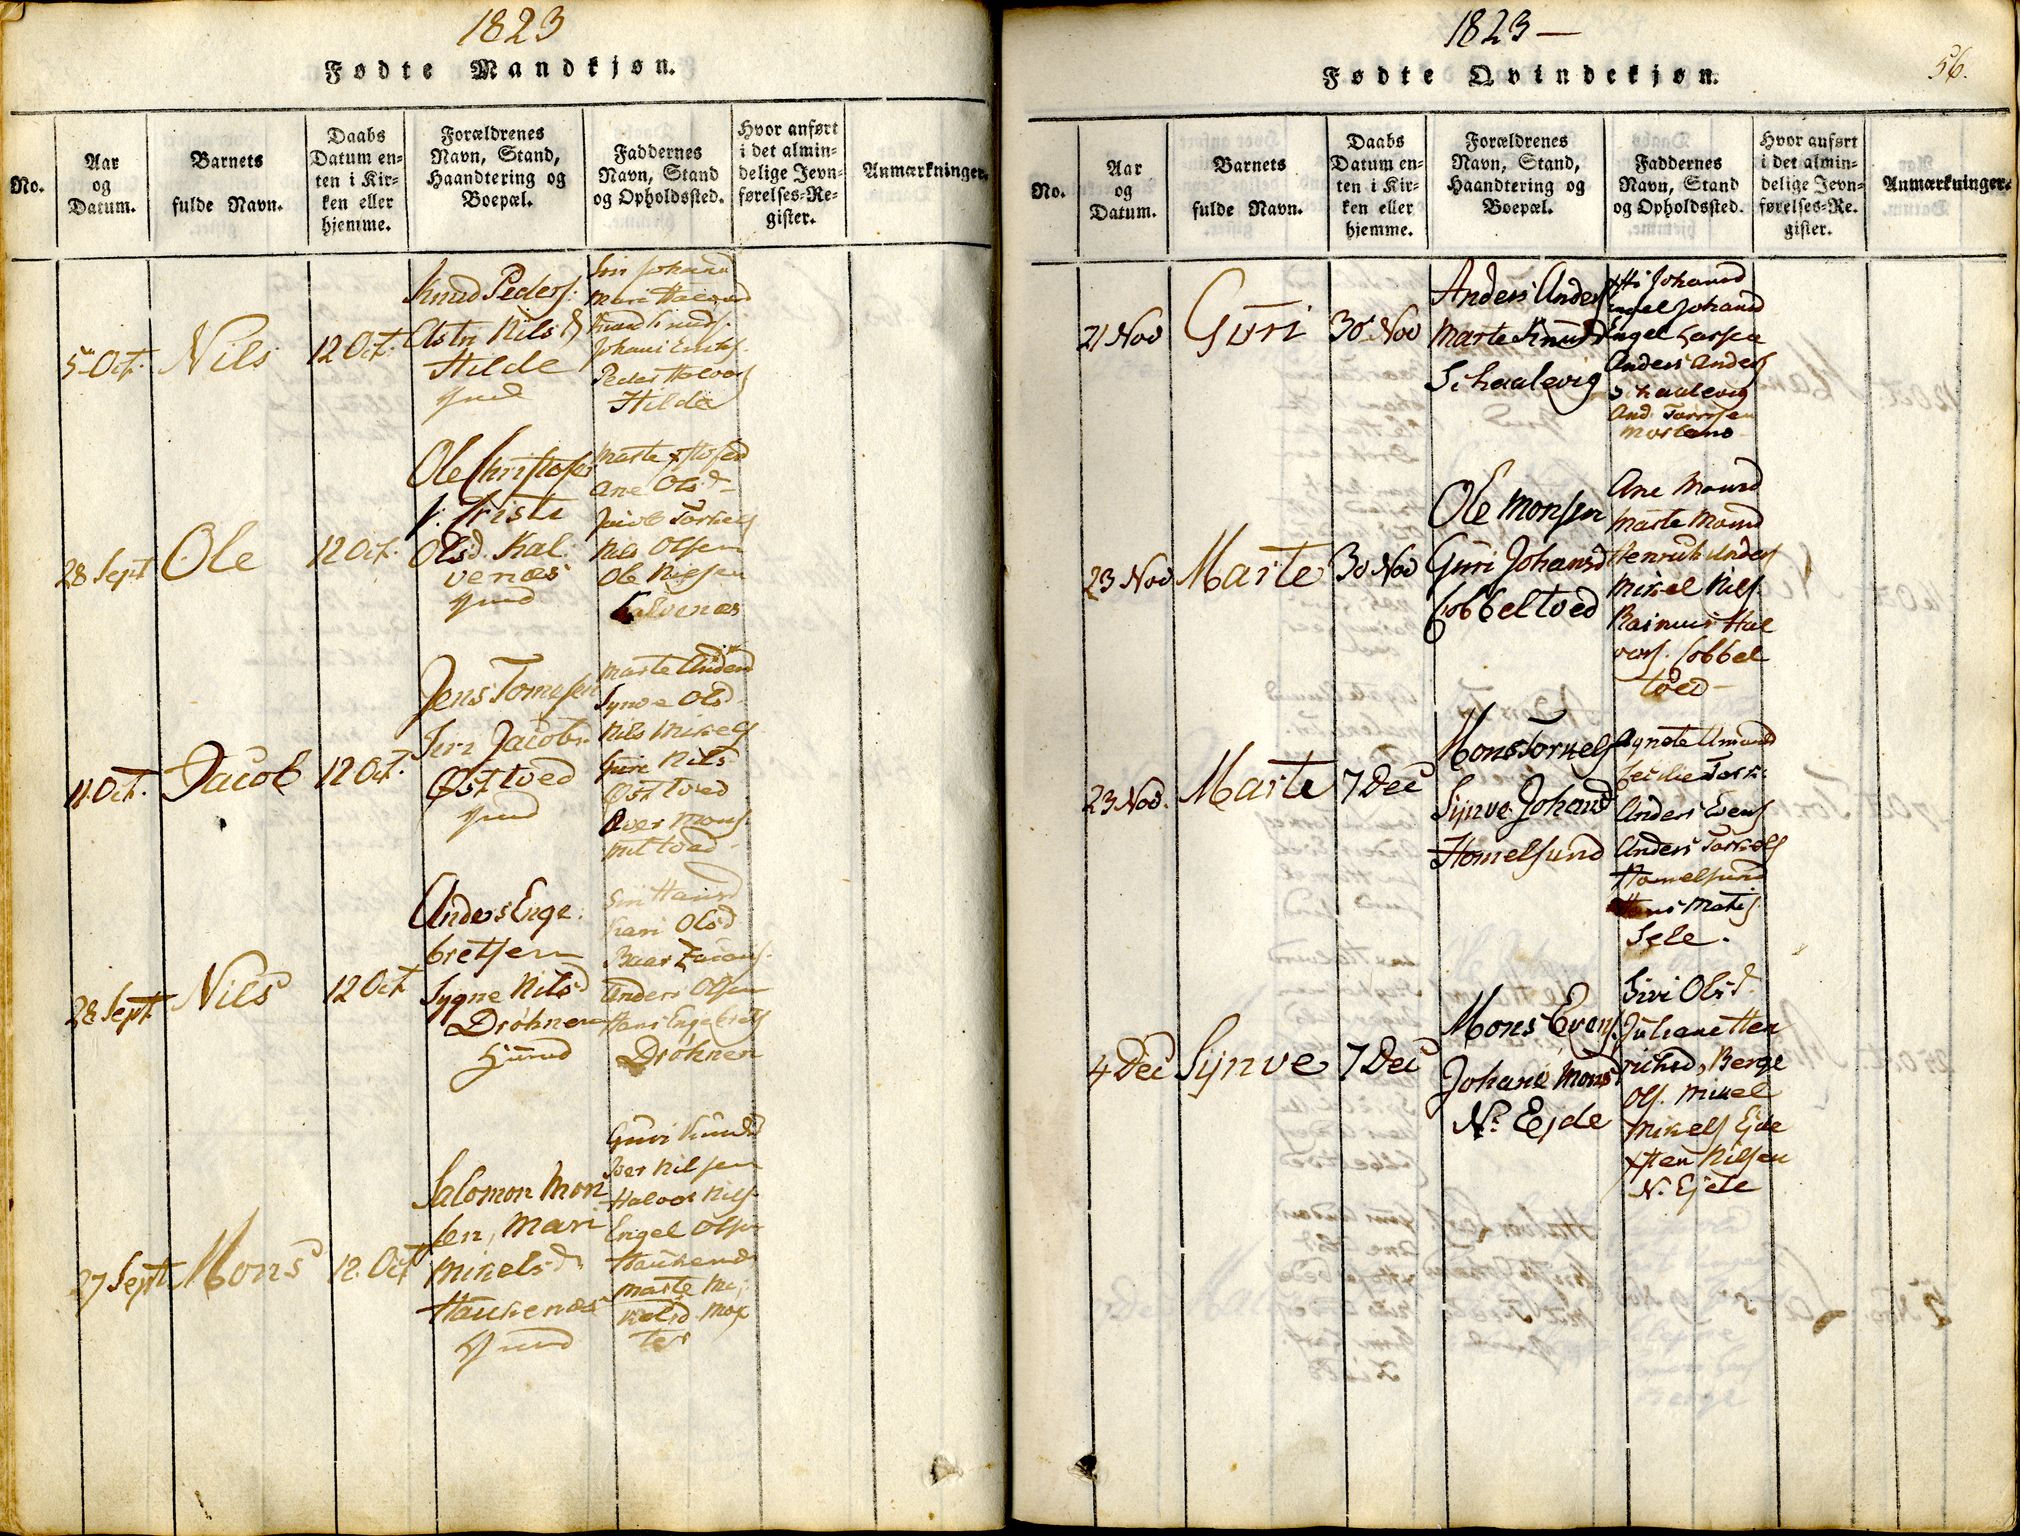 1823
Fødte Mandkjøn.
No.
Aar
og
Datum.
Barnets
fulde Navn.
Daabs
Datum en-
ten i Kir-
ken eller
hjemme.
Forældrenes
Navn, Stand,
Haandtering og
Boepæl.
Faddernes
Navn, Stand
og Opholdssted.
Hvor anført
i det almin-
delige Jevn-
førelses-Re-
gister.
Anmærkninger.
5 Oct.
Nils
12 Oct.
Knud Peders:
Astri Nilsd
Hilde
Siri Johansd
Mari
Knud Knuds.
Peder Halvors
Hilde
28 Sept
Ole
12 Oct.
Ole Christofer
Olsd. Kal
venæs
Marte
Ane Olsd
Jacob Torkels
Nils Olsen
Ole Nilsen
Kalvenæs
11 Oct.
Jacob
12 Oct.
Jens Tomesen
Siri Jacobs.
Østtved
Marte Andersd
Synve Olsd
Nils Mikels
Guri Nilsd
Østtved
Iver Mons.
Mittved
28 Sept.
Nils
12 Oct
Anders Enge:
bretsen
Sygne Nilsd
Drøhnen
Siri Hansd
Kari Olsd
Anders Olsen
Hans Engebrets
Drøhnen
27 Sept
Mons
12. Oct
Salomon Mon
sen, Mari
Mikelsd
Haukenæs
Guri Knudsd
Iver Nilsen
Halvor Nils.
Engel Olsen
Haukenæs
Marte Mi,
kelsd. Mox
ter
1823 —
56.
Fødte Qvindekjøn.
No.
Aar
og
Datum.
Barnets
fulde Navn.
Daabs
Datum en-
ten i Kir-
ken eller
hjemme.
Forældrenes
Navn, Stand,
Haandtering og
Boepæl.
Faddernes
Navn, Stand
og Opholdssted.
Hvor anført
i det almin-
delige Jevn-
førelses-Re-
gister.
Anmærkninger.
21 Nov
Guri
30 Nov
Anders Anders
Marte Knudsd
Schaalevig
Johansd
Engel Johansd
Engel Larsen
Anders Anders
Schaalevig
And. Torrisen
Mosteno
23 Nov
Marte
30 Nov
Ole Monsen
Guri Johansd
Cobbeltved
Ane Monsd
Marte Monsd
Henrik Anders
Mikel Nils.
Rasmus Hal
vors. Cobbel
tved
23 Nov.
Marte
7 Dec
Mons Torkels
Synve Johansd
Homelsund
Agnete Amunds
Cecilie Tork:
Anders Evens
Anders Torkels
Homelsund
Hans Matis
Sele.
4 Dec
Synve
7 Dec
Mons Evens.
Johane Monsd
N. Ejde
Siri Olsd.
Juliane Hen
richsd, Berge
Ols. Mikel
Mikels Ejde
Xsten Nilsen
N. Ejde